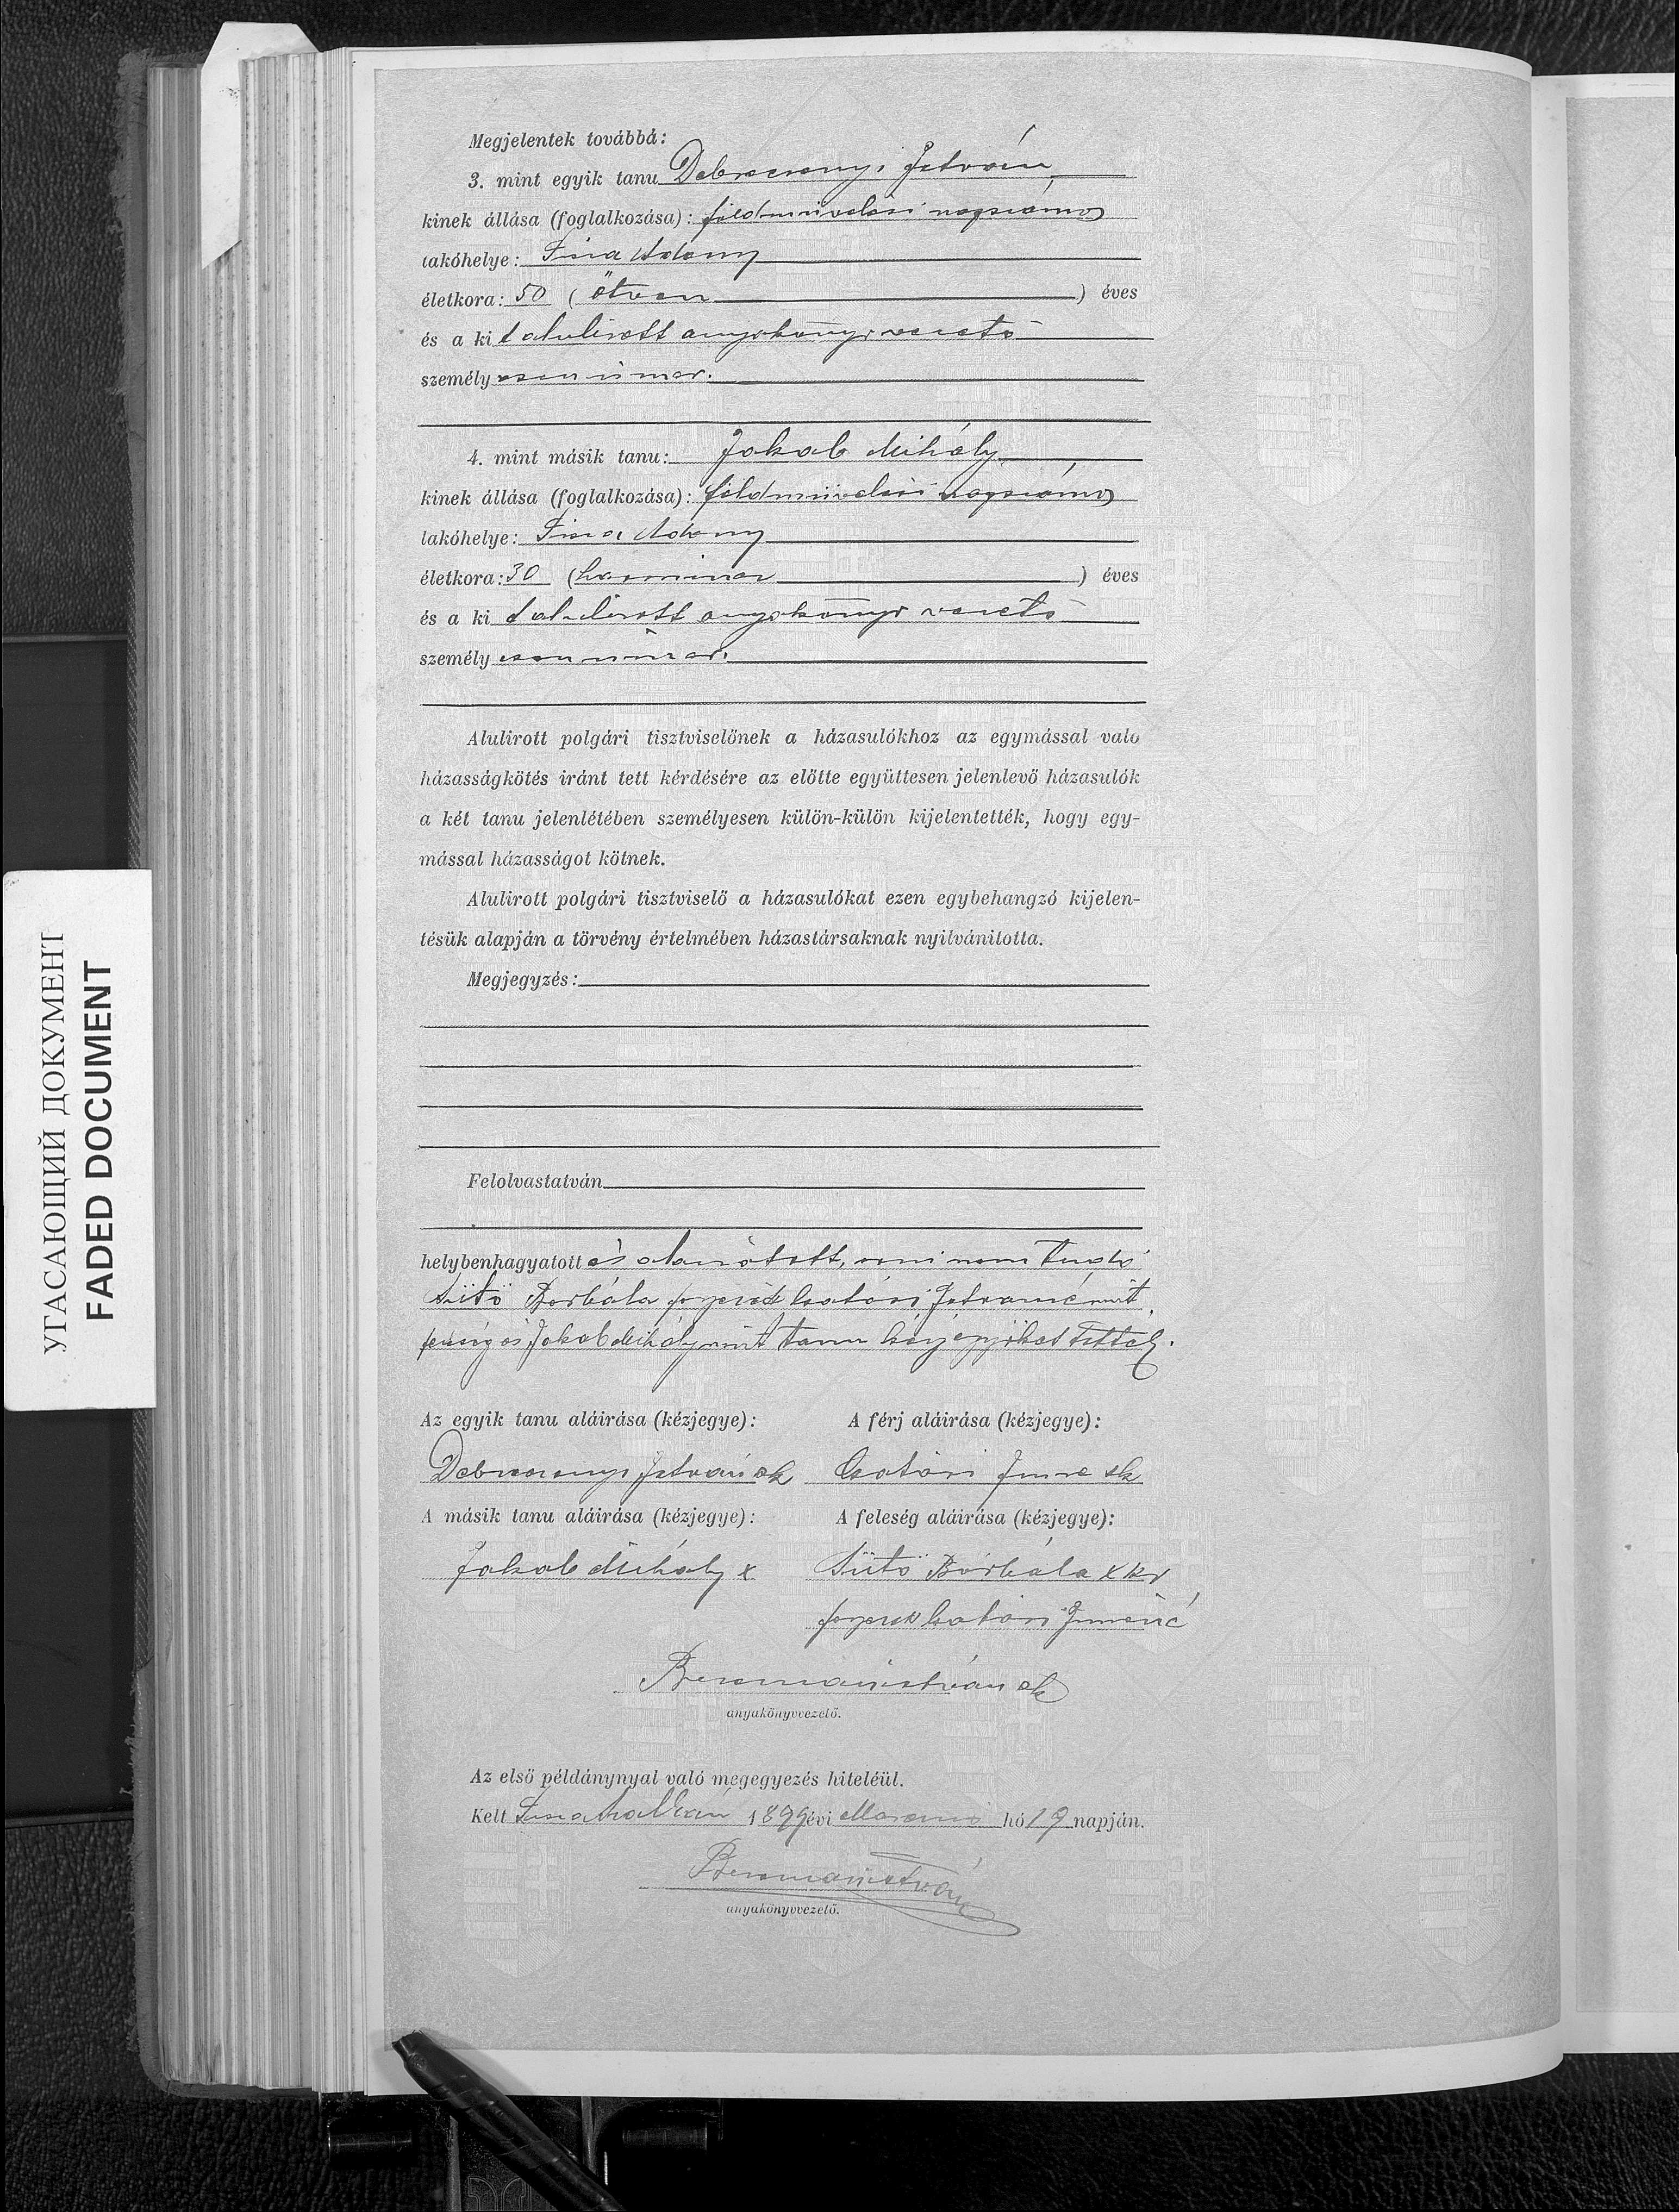 Megjelentek továbbá:
3. mint egyik tanu Debreczenyi István
kinek állása (foglalkozása): földmivelési napszámos
lakóhelye: Tisza Adony
életkora: 50 (ötven) éves
és a kit alulirott anyakönyvvezető
személyesen ismer.
4. mint másik tanu: Jakab Mihály
kinek állása (foglalkozása): földmivelési napszámos
lakóhelye: Tisza Adony
életkora: 30 (harmincz) éves
és a kit alulirott anyakönyvvezető
személyesen ismer.
Alulirott polgári tisztviselőnek a házasulókhoz az egymással való
házasságkötés iránt tett kérdésére az előtte együttesen jelenlevő házasulók
a két tanu jelenlétében személyesen külön-külön kijelentették, hogy egy-
mással házasságot kötnek.
Alulirott polgári tisztviselő a házasulókat ezen egybehangzó kijelen-
tésük alapján a törvény értelmében házastársaknak nyilvánitotta.
Megjegyzés:
Felolvastatván
helybenhagyatott és aláiratott, irni nem tudó
Sütő Borbála mint
feleség és Jakab Mihály mint tanu kézjegyöket tették.
Az egyik tanu aláirása (kézjegye):
A férj aláirása (kézjegye):
Debreczenyi István sk
Csatári Imre sk
A másik tanu aláirása (kézjegye):
A feleség aláirása (kézjegye):
Jakab Mihály x
Sütő Borbála x
Csatári Imréné
István sk
anyakönyvvezető.
Az első példánynyal való megegyezés hiteléül.
Kelt 1899 évi hó 19 napján.
István
anyakönyvvezető.
УГАСАЮЩИЙ ДОКУМЕНТ
FADED DOCUMENT